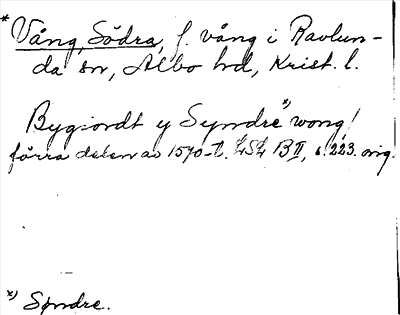 * Vång, Södra, f. vång i Ravlun-
da sn, Albo hd, Krist. l.
Bygiordt y Syndre *) wong/
förra delen av 1570-t. B II, s. 223. orig.
*) Søndre.